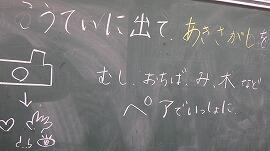 こうていに出て、あきさがしを
むし、おちば、み、木など
ペアでいっしょに